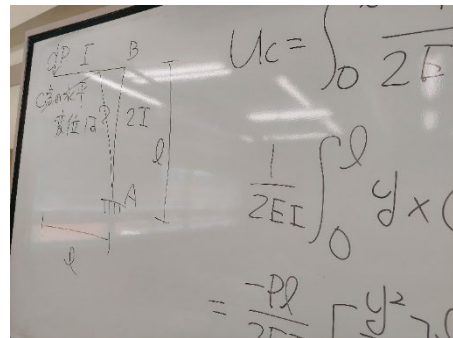 P I B
C点の水平
変位は?
2I
l
A
l
Uc = ∫0
2E
1/2EI ∫0 l y × (
= -Pl/2EI [ y²